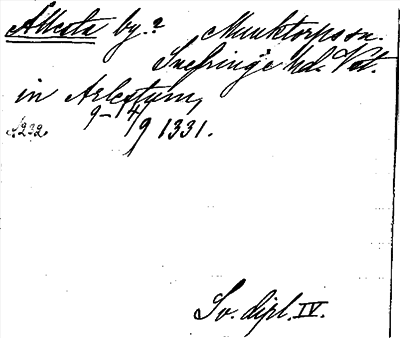 Allesta by.? Munktorps sn.
Snefringe hd. Vstm.
in Arlestum,
9-14/9 1331.
S. 232.
Sv. dipl. IV.